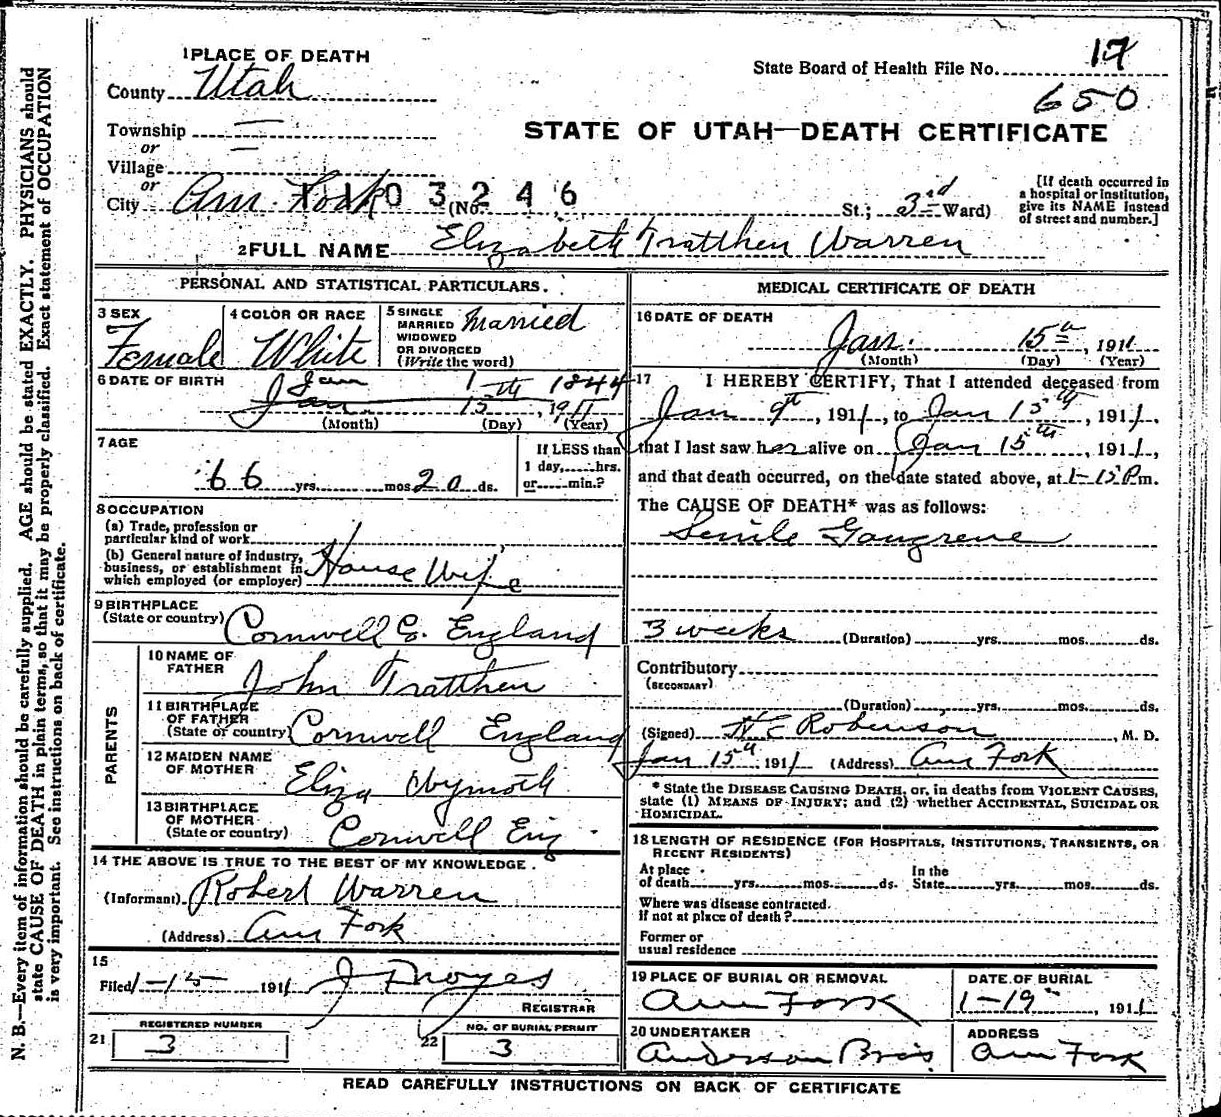 1 PLACE OF DEATH
County Utah
Township —
or
Village —
or
City Am. Fork (No. St.; 3rd Ward)
1103246
State Board of Health File No. 17
650
STATE OF UTAH—DEATH CERTIFICATE
[If death occurred in
a hospital or institution,
give its NAME instead
of street and number.]
2 FULL NAME Elizabeth Tratthen Warren
PERSONAL AND STATISTICAL PARTICULARS.
3 SEX
Female
4 COLOR OR RACE
White
5 SINGLE
MARRIED
WIDOWED
OR DIVORCED
(Write the word)
Married
6 DATE OF BIRTH
Jan 1th 1844
Jan. 15, 1911
(Month) (Day) (Year)
7 AGE
66 yrs. mos. 20 ds.
If LESS than
1 day, hrs.
or min.?
8 OCCUPATION
(a) Trade, profession or
particular kind of work
(b) General nature of industry,
business, or establishment in
which employed (or employer)
House Wife
9 BIRTHPLACE
(State or country)
Cornwell Co. England
PARENTS
10 NAME OF
FATHER
John Tratthen
11 BIRTHPLACE
OF FATHER
(State or country)
Cornwell England
12 MAIDEN NAME
OF MOTHER
Eliza
13 BIRTHPLACE
OF MOTHER
(State or country)
Cornwell Eng
14 THE ABOVE IS TRUE TO THE BEST OF MY KNOWLEDGE.
(Informant) Robert Warren
(Address) Am Fork
15
Filed 1-15 1911 J Noyes
REGISTRAR
21 REGISTERED NUMBER
3
22 NO. OF BURIAL PERMIT
3
MEDICAL CERTIFICATE OF DEATH
16 DATE OF DEATH
Jan. 15th, 1911
(Month) (Day) (Year)
17 I HEREBY CERTIFY, That I attended deceased from
Jan 9th, 1911, to Jan 15th, 1911,
that I last saw her alive on Jan 15th, 1911,
and that death occurred, on the date stated above, at 1-15 P.m.
The CAUSE OF DEATH* was as follows:
Senile Gangrene
3 weeks (Duration) yrs. mos. ds.
Contributory
(SECONDARY)
(Duration) yrs. mos. ds.
(Signed) H E Robinson, M. D.
Jan 15th 1911 (Address) Am Fork
* State the DISEASE CAUSING DEATH, or, in deaths from VIOLENT CAUSES,
state (1) MEANS OF INJURY; and (2) whether ACCIDENTAL, SUICIDAL OR
HOMICIDAL.
18 LENGTH OF RESIDENCE (FOR HOSPITALS, INSTITUTIONS, TRANSIENTS, OR
RECENT RESIDENTS)
At place
of death yrs. mos. ds.
In the
State yrs. mos. ds.
Where was disease contracted.
if not at place of death?
Former or
usual residence
19 PLACE OF BURIAL OR REMOVAL
Am Fork
DATE OF BURIAL
1-19, 1911
20 UNDERTAKER
Anderson Bros.
ADDRESS
Am Fork
READ CAREFULLY INSTRUCTIONS ON BACK OF CERTIFICATE
N. B.—Every item of information should be carefully supplied. AGE should be stated EXACTLY. PHYSICIANS should
state CAUSE OF DEATH in plain terms, so that it may be properly classified. Exact statement of OCCUPATION
is very important. See instructions on back of certificate.